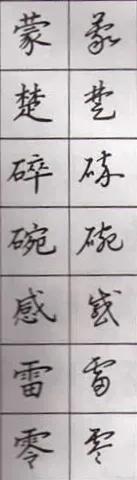 蒙 蒙
楚 楚
碎 碎
碗 碗
感 感
雷 雷
零 零